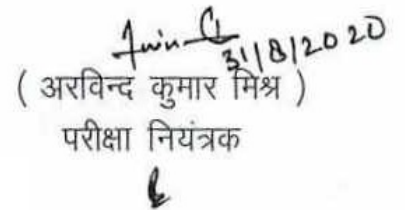 31/8/2020
( अरविन्द कुमार मिश्र )
परीक्षा नियंत्रक